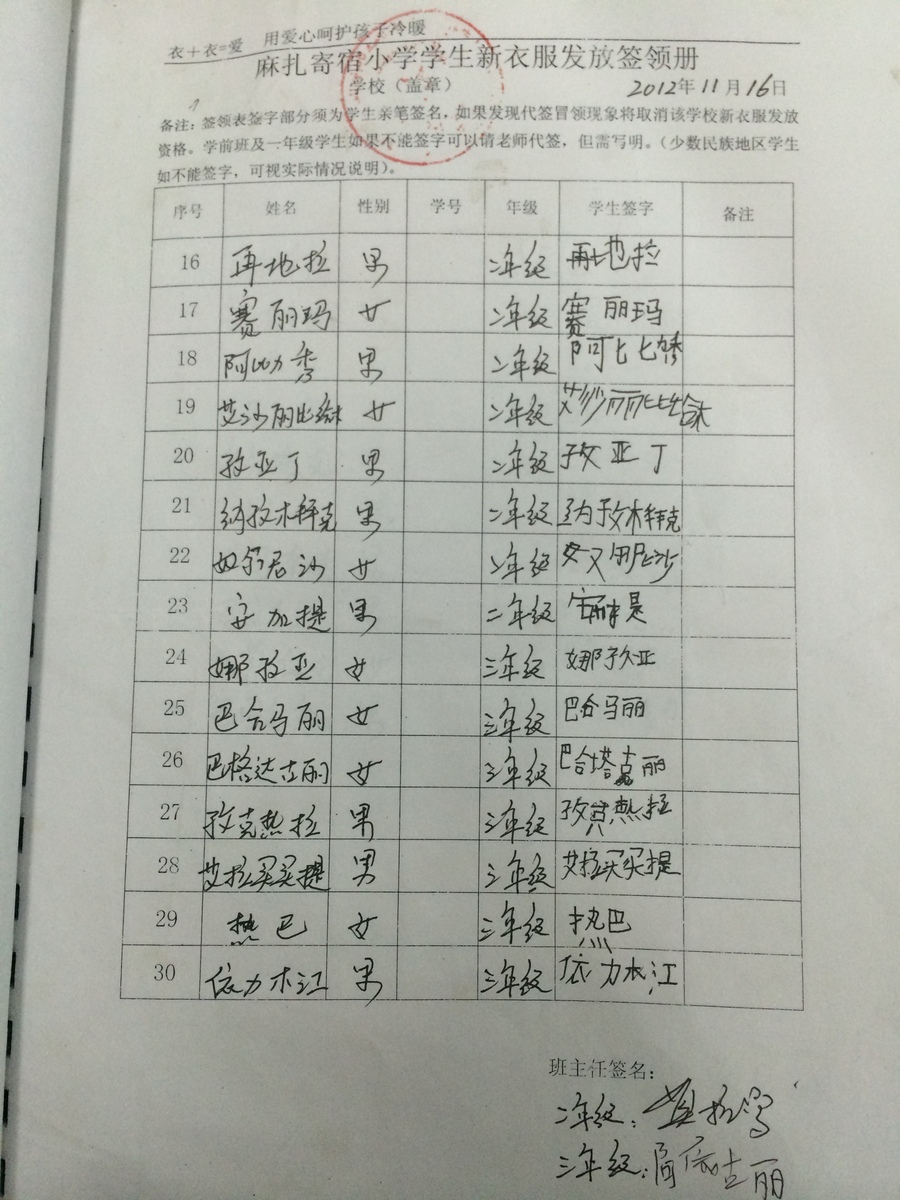 衣+衣=爱 用爱心呵护孩子冷暖
麻扎寄宿小学学生新衣服发放签领册
学校（盖章） 2012年11月16日
备注：签领表签字部分须为学生亲笔签名，如果发现代签冒领现象将取消该学校新衣服发放
资格。学前班及一年级学生如果不能签字可以请老师代签，但需写明。（少数民族地区学生
如不能签字，可视实际情况说明）。
序号 姓名 性别 学号 年级 学生签字 备注
16 再地拉 男 二年级 再地拉
17 赛丽玛 女 二年级 赛丽玛
18 阿比力 男 二年级 阿
19 艾沙丽比 女 二年级 艾沙丽比
20 孜亚丁 男 二年级 孜亚丁
21 纳孜木拜克 男 二年级 纳孜木拜克
22 奴尔君沙 女 二年级
23 安加提 男 二年级
24 娜孜亚 女 三年级 娜孜亚
25 巴合马丽 女 三年级 巴合马丽
26 巴格达古丽 女 三年级 巴合塔 丽
27 孜克热拉 男 三年级 孜克热拉
28 艾拉买买提 男 三年级 艾拉买买提
29 热巴 女 三年级 热巴
30 依力木江 男 三年级 依力木江
班主任签名：
二年级：
三年级： 古丽